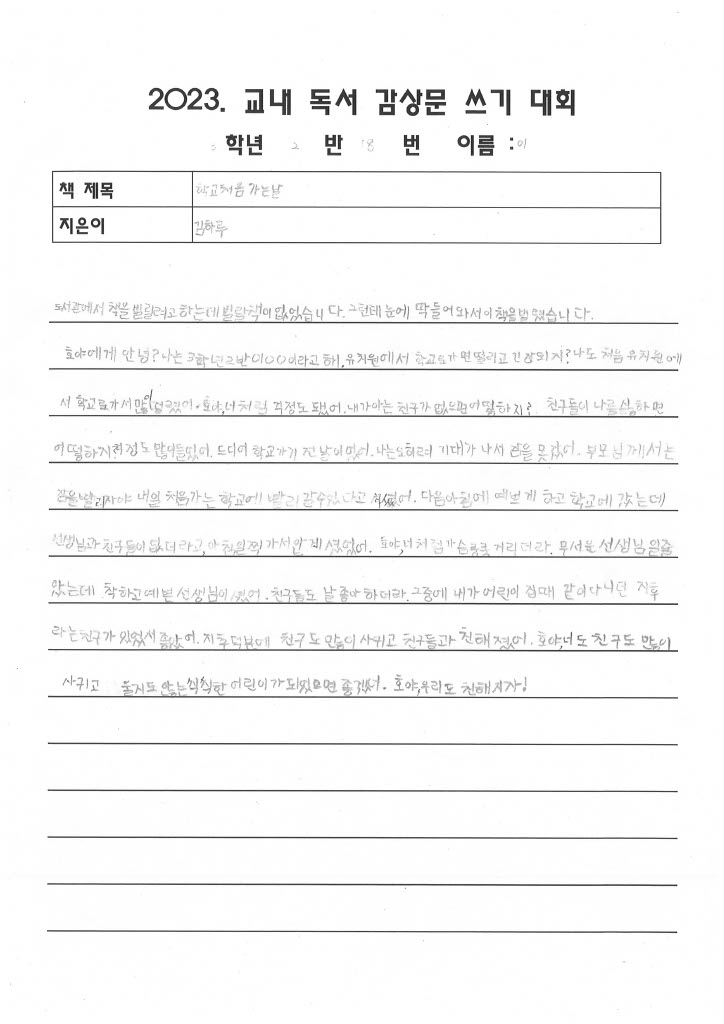 2023. 교내 독서 감상문 쓰기 대회
학년 2 반 18 번 이름 : 이
책 제목 학교처음 가는날
지은이 김하루
도서관에서 책을 빌릴려고하는데 빌릴책이 없었습니다. 그런데 눈에 딱들어와서 이책을빌렸습니다.
호야에게 안녕? 나는 3학년2반 이00이라고해, 유치원에서 학교로가면 떨리고 긴장되지? 나도 처음 유치원에
서 학교로가서 많이 떨렸어. 호야, 너처럼 걱정도 됐어. 내가아는 친구가 없으면 어떨하지? 친구들이 나를 싫어하면
어떨하지? 걱정도 많이들었어. 드디어 학교가기 전날이었어. 나는오히려 기대가 나서 잠을 못잤어. 부모님께서는
잠을빨리자야 내일 처음가는 학교에 빨리 갈수있다고 하셨어. 다음아침에 예쁘게 하고 학교에 갔는데
선생님과 친구들이 없더라고, 아침일찍 가서 안계셨었어. 호야, 너처럼가슴이쿵쿵 거리더라. 무서운 선생님 일줄
알았는데 착하고예쁜 선생님이셨어. 친구들도 날 좋아하더라. 그중에 내가 어린이집때 같이다니던 지후
라는친구가 있었서 좋았어. 지후덕분에 친구도 많이 사귀고 친구들과 친해졌어. 호야, 너도 친구도 많이
사귀고 울지도 않는 씩씩한 어린이가 되있으면 좋겠어. 호야, 우리도 친해지자!